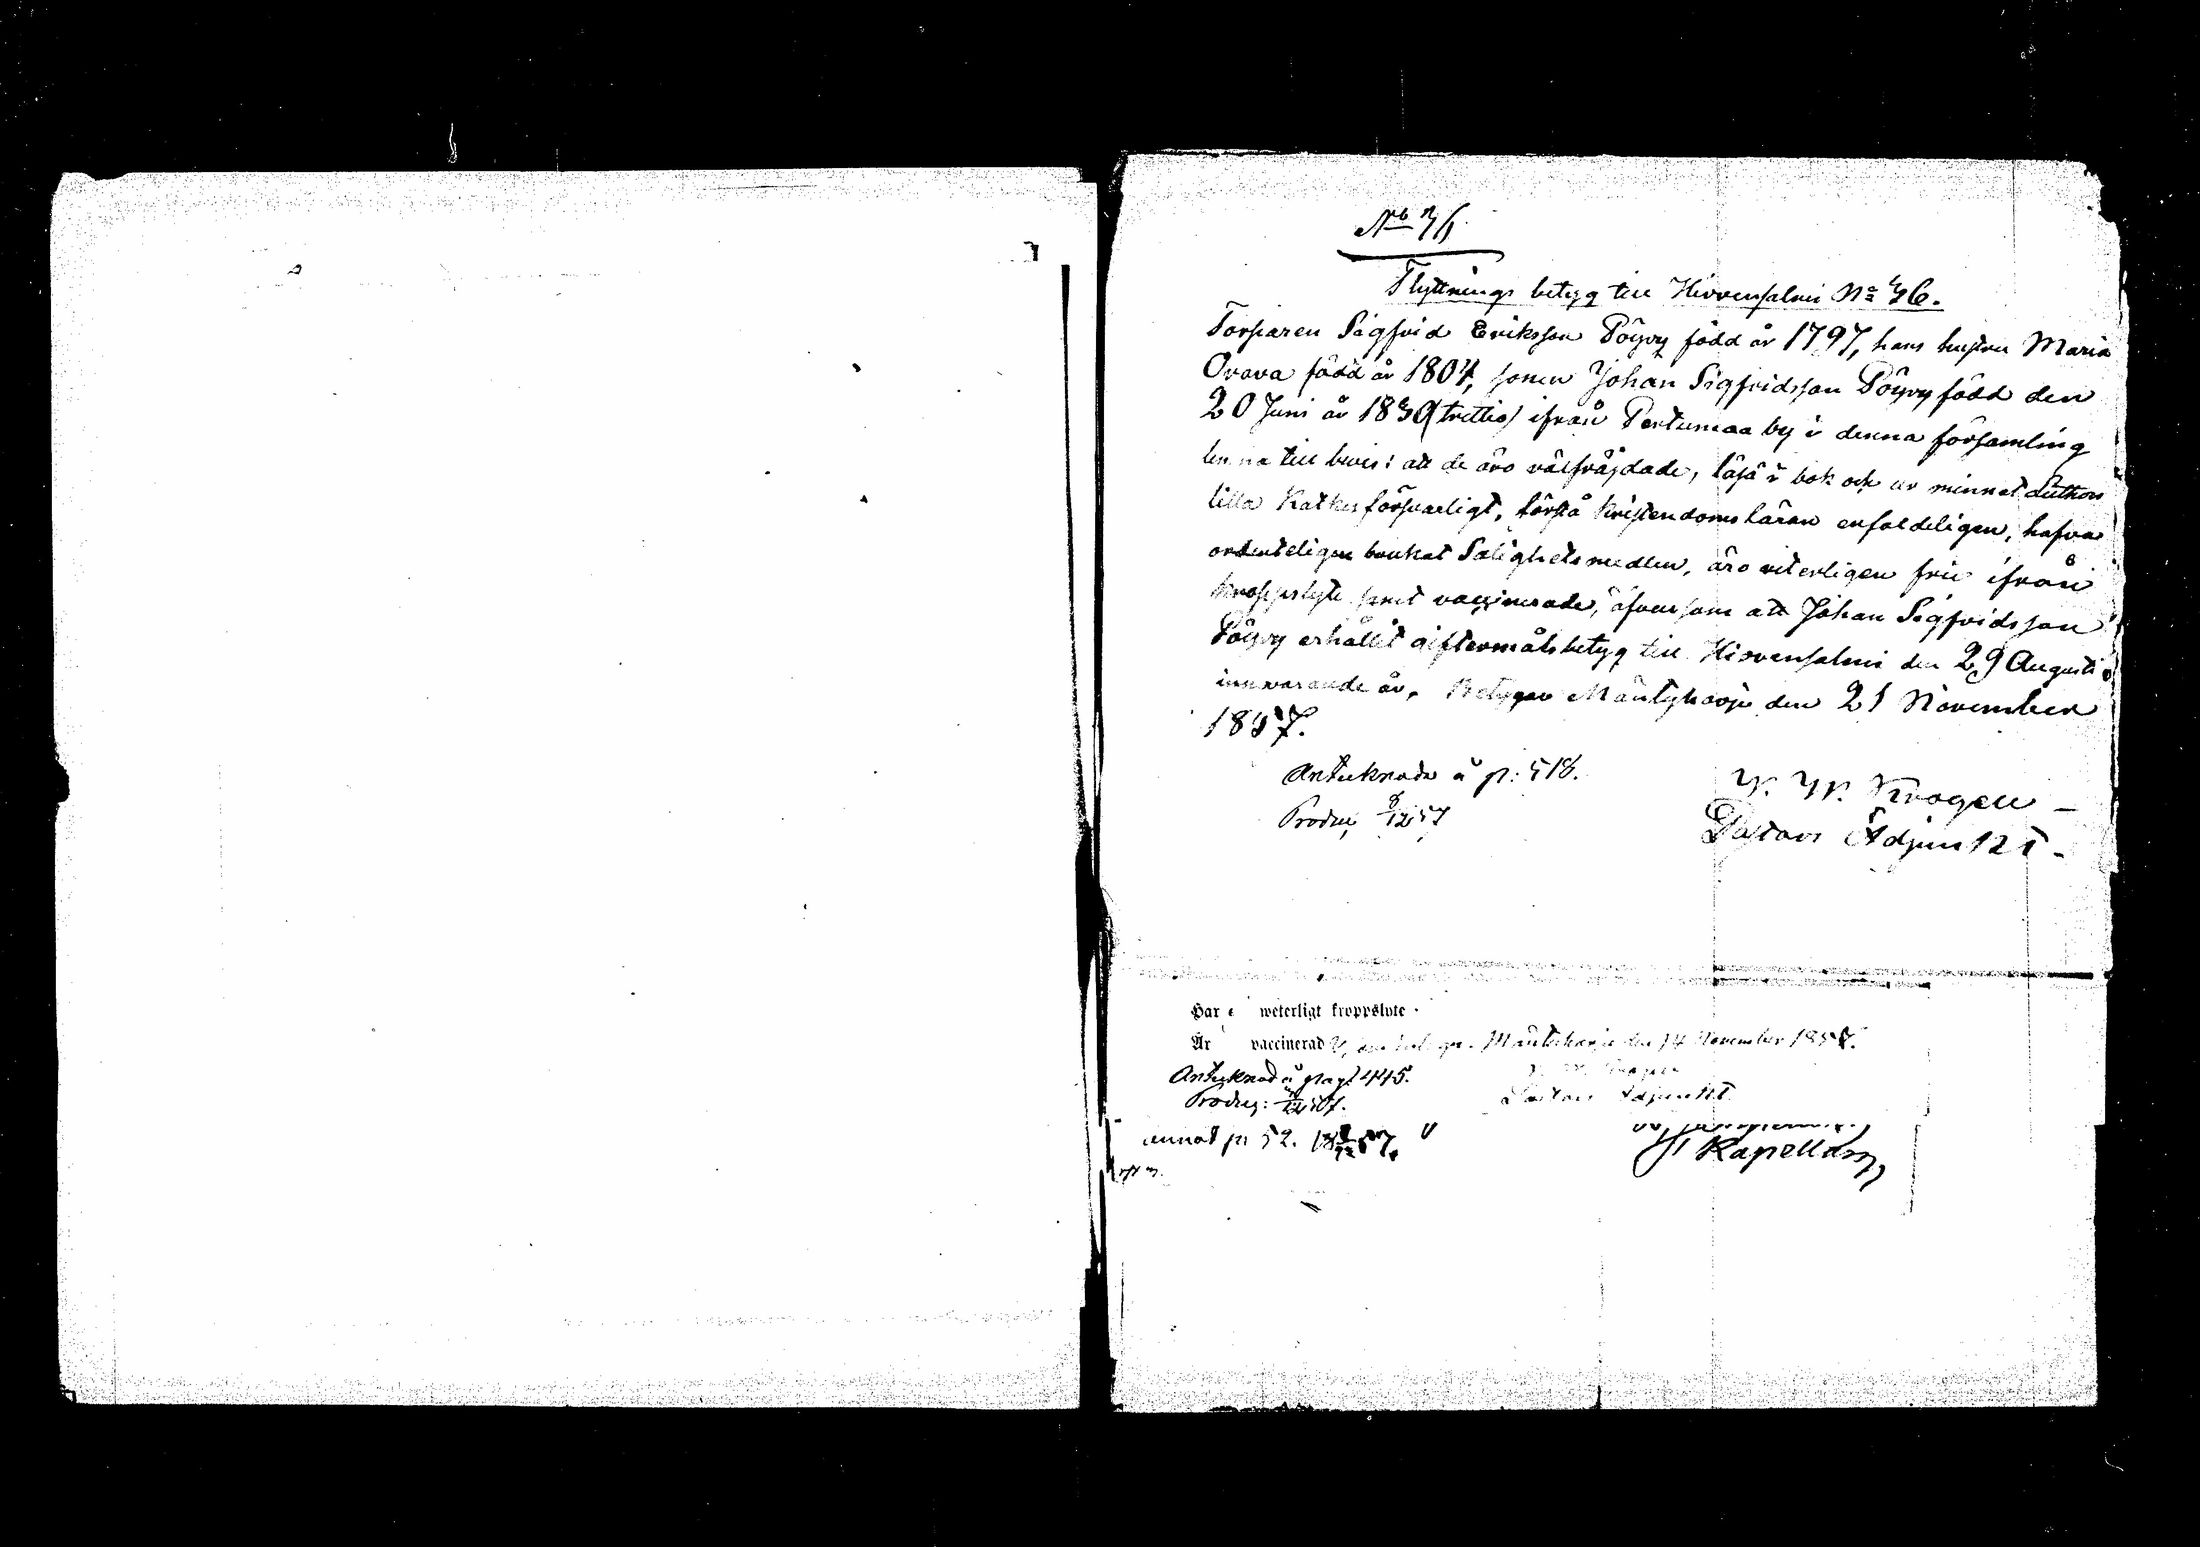 No 76.
Flyttnings betyg till Hirvensalmi No 36.
Torparen Sigfrid Eriksson Pöyry född år 1797, hans hustru Maria
Orava född år 1804, sonen Johan Sigfridsson Pöyry född den
20 Juni år 1830 (trettio) ifrån Pertumaa by i denna församling
lemna till bevis: att de äro välfräjdade, läsa i bok och ur minnet Luthers
lilla Katkes försvarligt, förstå kristendomsläran enfaldeligen, hafva
ordenteligen brukat Salighetsmedlen, äro veterligen frie ifrån
kroppslyte samt vaccinerade, äfvensom att Johan Sigfridsson
Pöyry erhållit giftermålsbetyg till Hirvensalmi den 29 Augusti
innevarande år. Betygar Mäntyharju den 21 November
1857.
Antecknade å p: 518.
Produc 8/12 57
Krogell
Pastors Adjunkt.
Har weterligt kroppslyte
Är vaccinerad Mäntyharju den 14 November 1857.
Antecknad å pag 445.
Produc: 57.
Pastors Adjunkt
p. 52. 57.
Kapellan